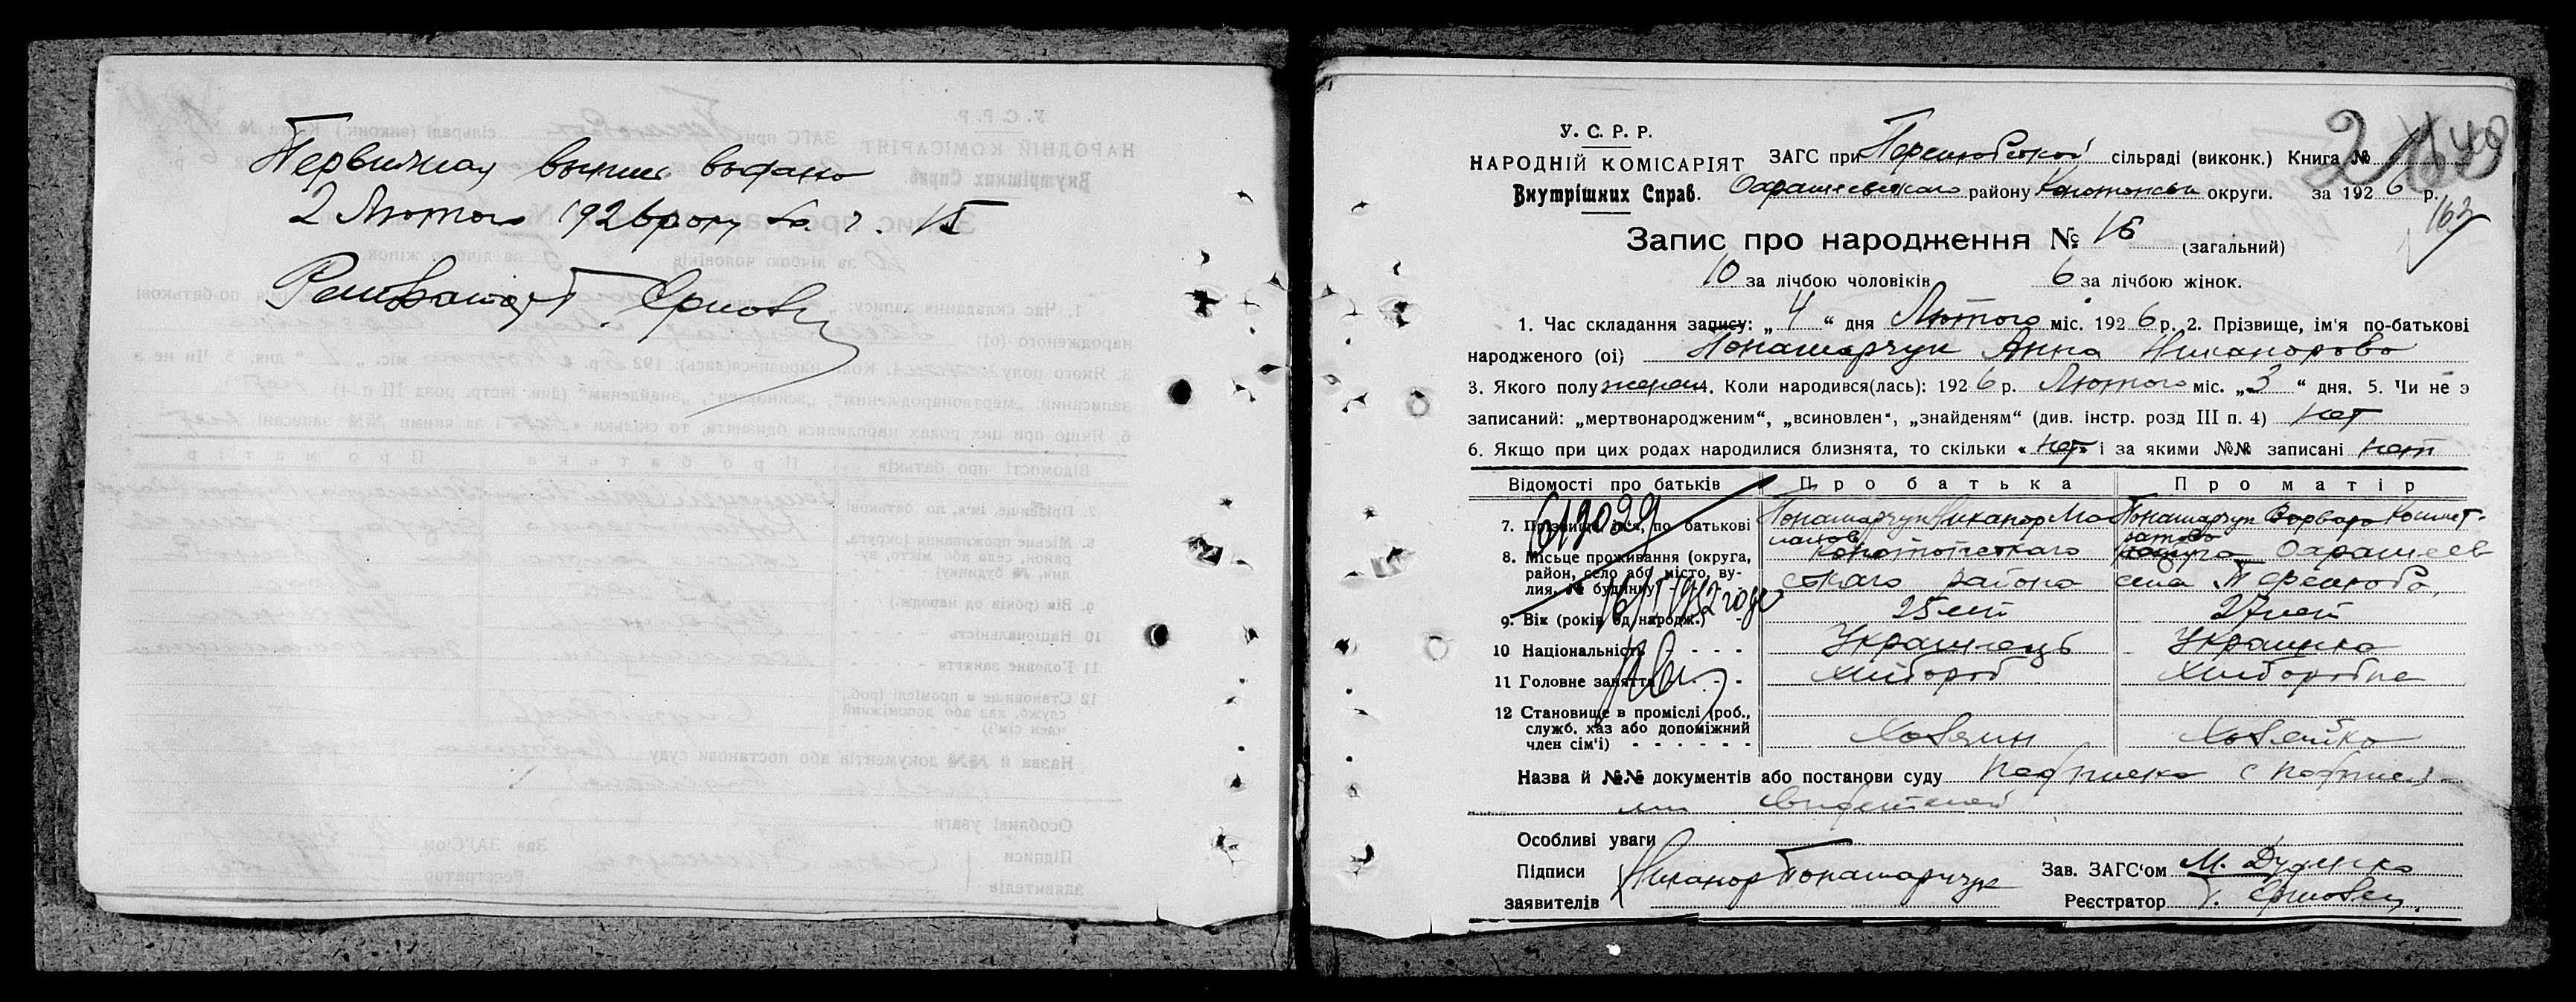 Первичная выпись выдана
2 Лютого 1926 року за ч. 15
Регистратор Т. Ермовец
У. С. Р. Р.
НАРОДНІЙ КОМІСАРІЯТ
Внутрішних Справ.
ЗАГС при Перелюбской сільраді (виконк.) Книга №
района району Конотопськ округи. за 1926 р.
2
163
Запис про народження № 16 (загальний)
10 за лічбою чоловіків 6 за лічбою жінок.
1. Час складання запису: „ 4 “ дня Лютого міс. 1926 р. 2. Прізвище, ім'я по-батькові
народженого (ої) Понамарчук Анна Никанорова
3. Якого полу женск 4. Коли народився(лась): 1926 р. Лютого міс. „3 “ дня. 5. Чи не э
записаний: „мертвонародженим“, „всиновлен“, „знайденям“ (див. інстр. розд III п. 4) нет
6. Якщо при цих родах народилися близнята, то скільки « нет » і за якими №№ записані нет
Відомості про батьків Про батька Про матір
7. Прізвище, ім'я, по батькові Понамарчук Никанор Понамарчук Варвара
8. Місьце проживання (округа, Конотопского округа
район, село або місто, ву- ского района села Перелюба,
лия, № будинку)
9. Вік (років од народж.) - 25 лет 27 лет
10 Національність - - - Украинець Украинка
11 Головне заняття - - - Хлибороб Хлиборобка
12 Становище в промислі (роб.,
служб. хаз або допоміжний Хозяин Хозяйка
член сім'ї) - - - - - -
619029
16/I 1952 года
Назва й №№ документів або постанови суду Подписка с подпися-
ми свидетелей
Особливі уваги
Підписи Никанор Понамарчук Зав. ЗАГС'ом М. Дуденко
заявителів Реєстратор Т. Ермовец